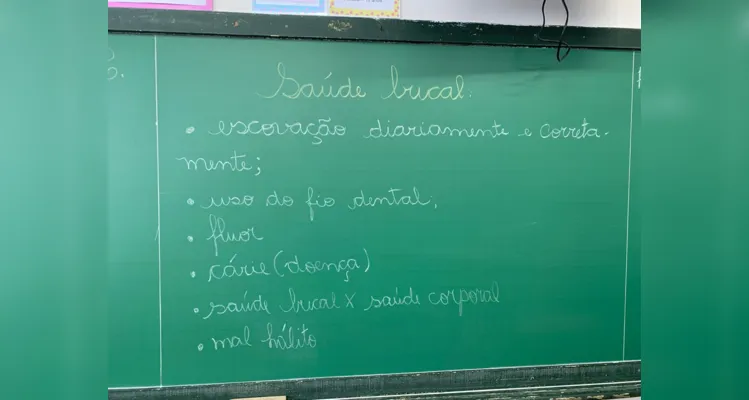 Saúde bucal.
• escovação diariamente e correta-
mente;
• uso do fio dental.
• fluor
• cárie (doença)
• saúde bucal x saúde corporal
• mal hálito